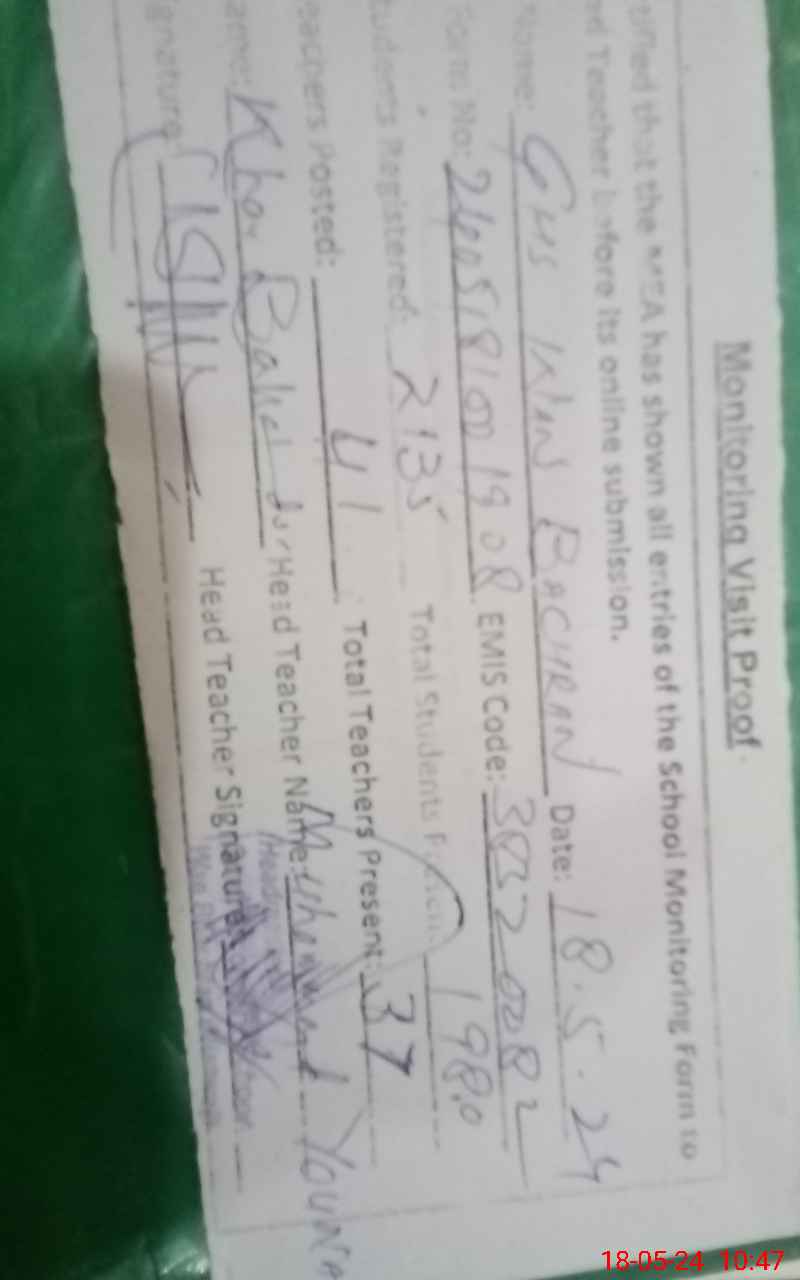 Monitoring Visit Proof
that the MEA has shown all entries of the School Monitoring Form to
Teacher before its online submission.
Name: GHS WAN BACHRAN Date: 18.5.24
Form No: 2405181001908 EMIS Code: 38320082
Students Registered: 2135 Total Students Present: 1980
Teachers Posted: 41 Total Teachers Present: 37
Khan Head Teacher Name: Muhammad
Head Teacher Signature:
18-05-24 10:47